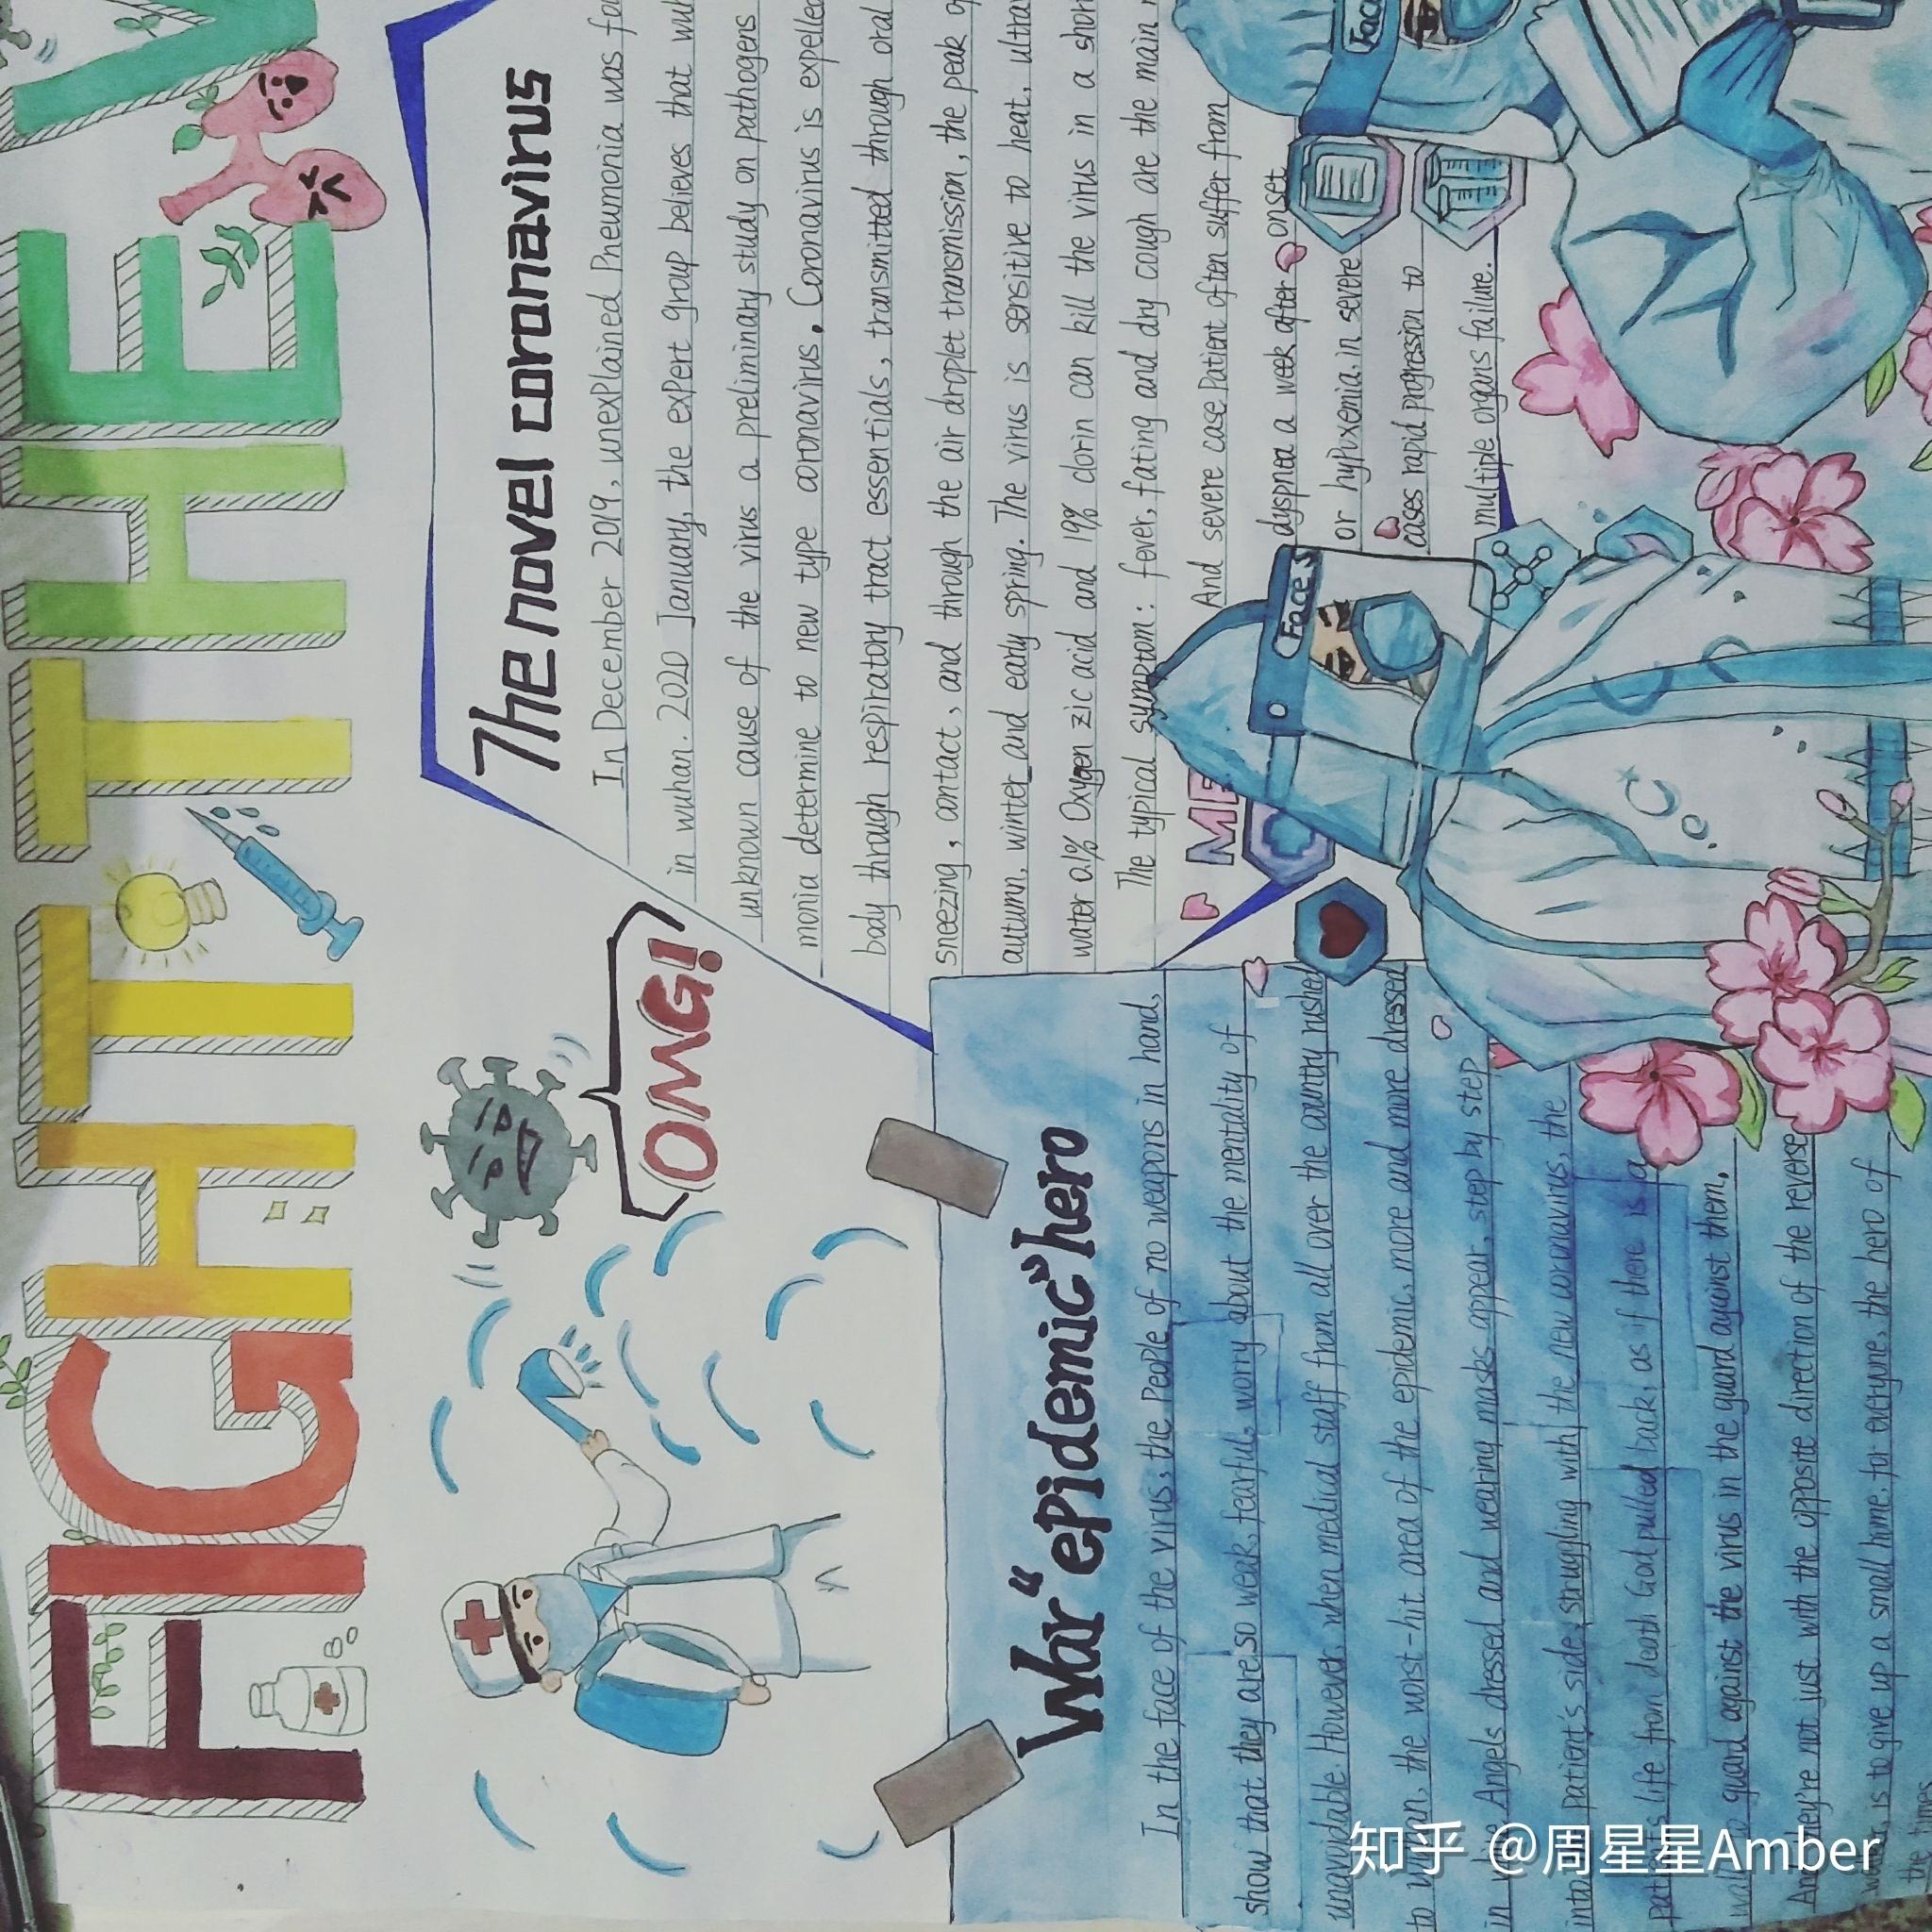 FIGHT THE V
The novel coronavirus
In December 2019, unexPlained Pneumonia was fo
in wuhan. 2020 January, the exPert group believes that wuh
unknown cause of the virus a preliminary study on pathogens
monia determine to new type coronavirus. Coronavirus is expelled
body through respiratory tract essentials, transmitted through oral
sneezing, contact, and through the air droplet transmission, the peak of
autumn, winter and early spring. The virus is sensitive to heat, ultra
water 0.1% Oxygen zic acid and 19% dorin can kill the virus in a shor
The typical symptom: fever, fating and dry cough are the main
And severe case Patient often suffer from
dyspnea a week after onset
or hyPoxemia, in severe
cases rapid progression to
multiple organs failure.
OMG!
ME
Face S
Face
War "ePidemic" hero
In the face of the virus, the PeoPle of no weapons in hand,
show that they are so weak, fearful, worry about the mentality of
unavoidable. However, when medical staff from all over the country rushed
to wuhan, the worst-hit area of the epidemic, more and more dressed
in Angels dressed and wearing masks appear, step by step
into patient's side, struggling with the new coronavirus, the
life from death God pulled back, as if there is a
guard against the virus in the guard against them.
And they're not just with the opposite direction of the reverse
is to give up a small home, for everyone, the hero of
the times
知乎 @周星星Amber